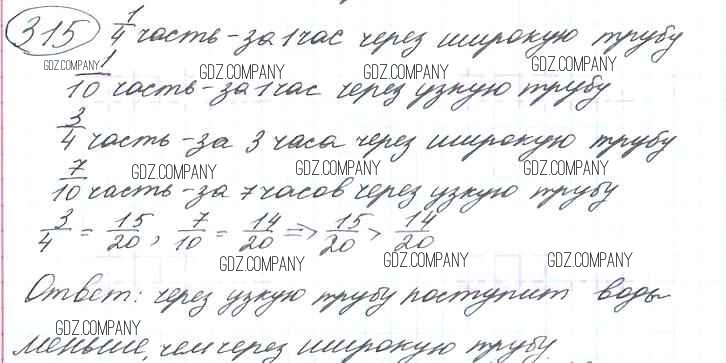 315 1/4 часть - за 1 час через широкую трубу
GDZ.COMPANY GDZ.COMPANY GDZ.COMPANY GDZ.COMPANY
1/10 часть - за 1 час через узкую трубу
3/4 часть - за 3 часа через широкую трубу
GDZ.COMPANY GDZ.COMPANY GDZ.COMPANY
7/10 часть - за 7 часов через узкую трубу
3/4 = 15/20, 7/10 = 14/20 => 15/20 > 14/20
GDZ.COMPANY GDZ.COMPANY GDZ.COMPANY
Ответ: через узкую трубу поступит воды
GDZ.COMPANY
меньше, чем через широкую трубу.